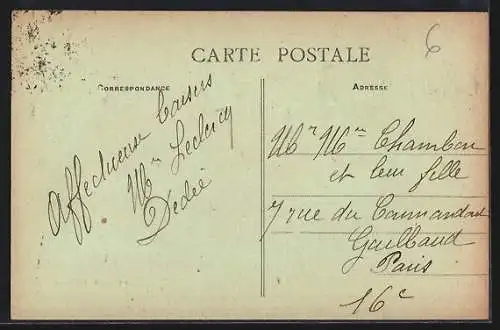 6
CARTE POSTALE
CORRESPONDANCE
ADRESSE
Affectueux baisers
Mme Leclercq
Dédée
Mr Mme Chambon
et leur fille
7 rue du Commandant
Guilbaud
Paris
16e